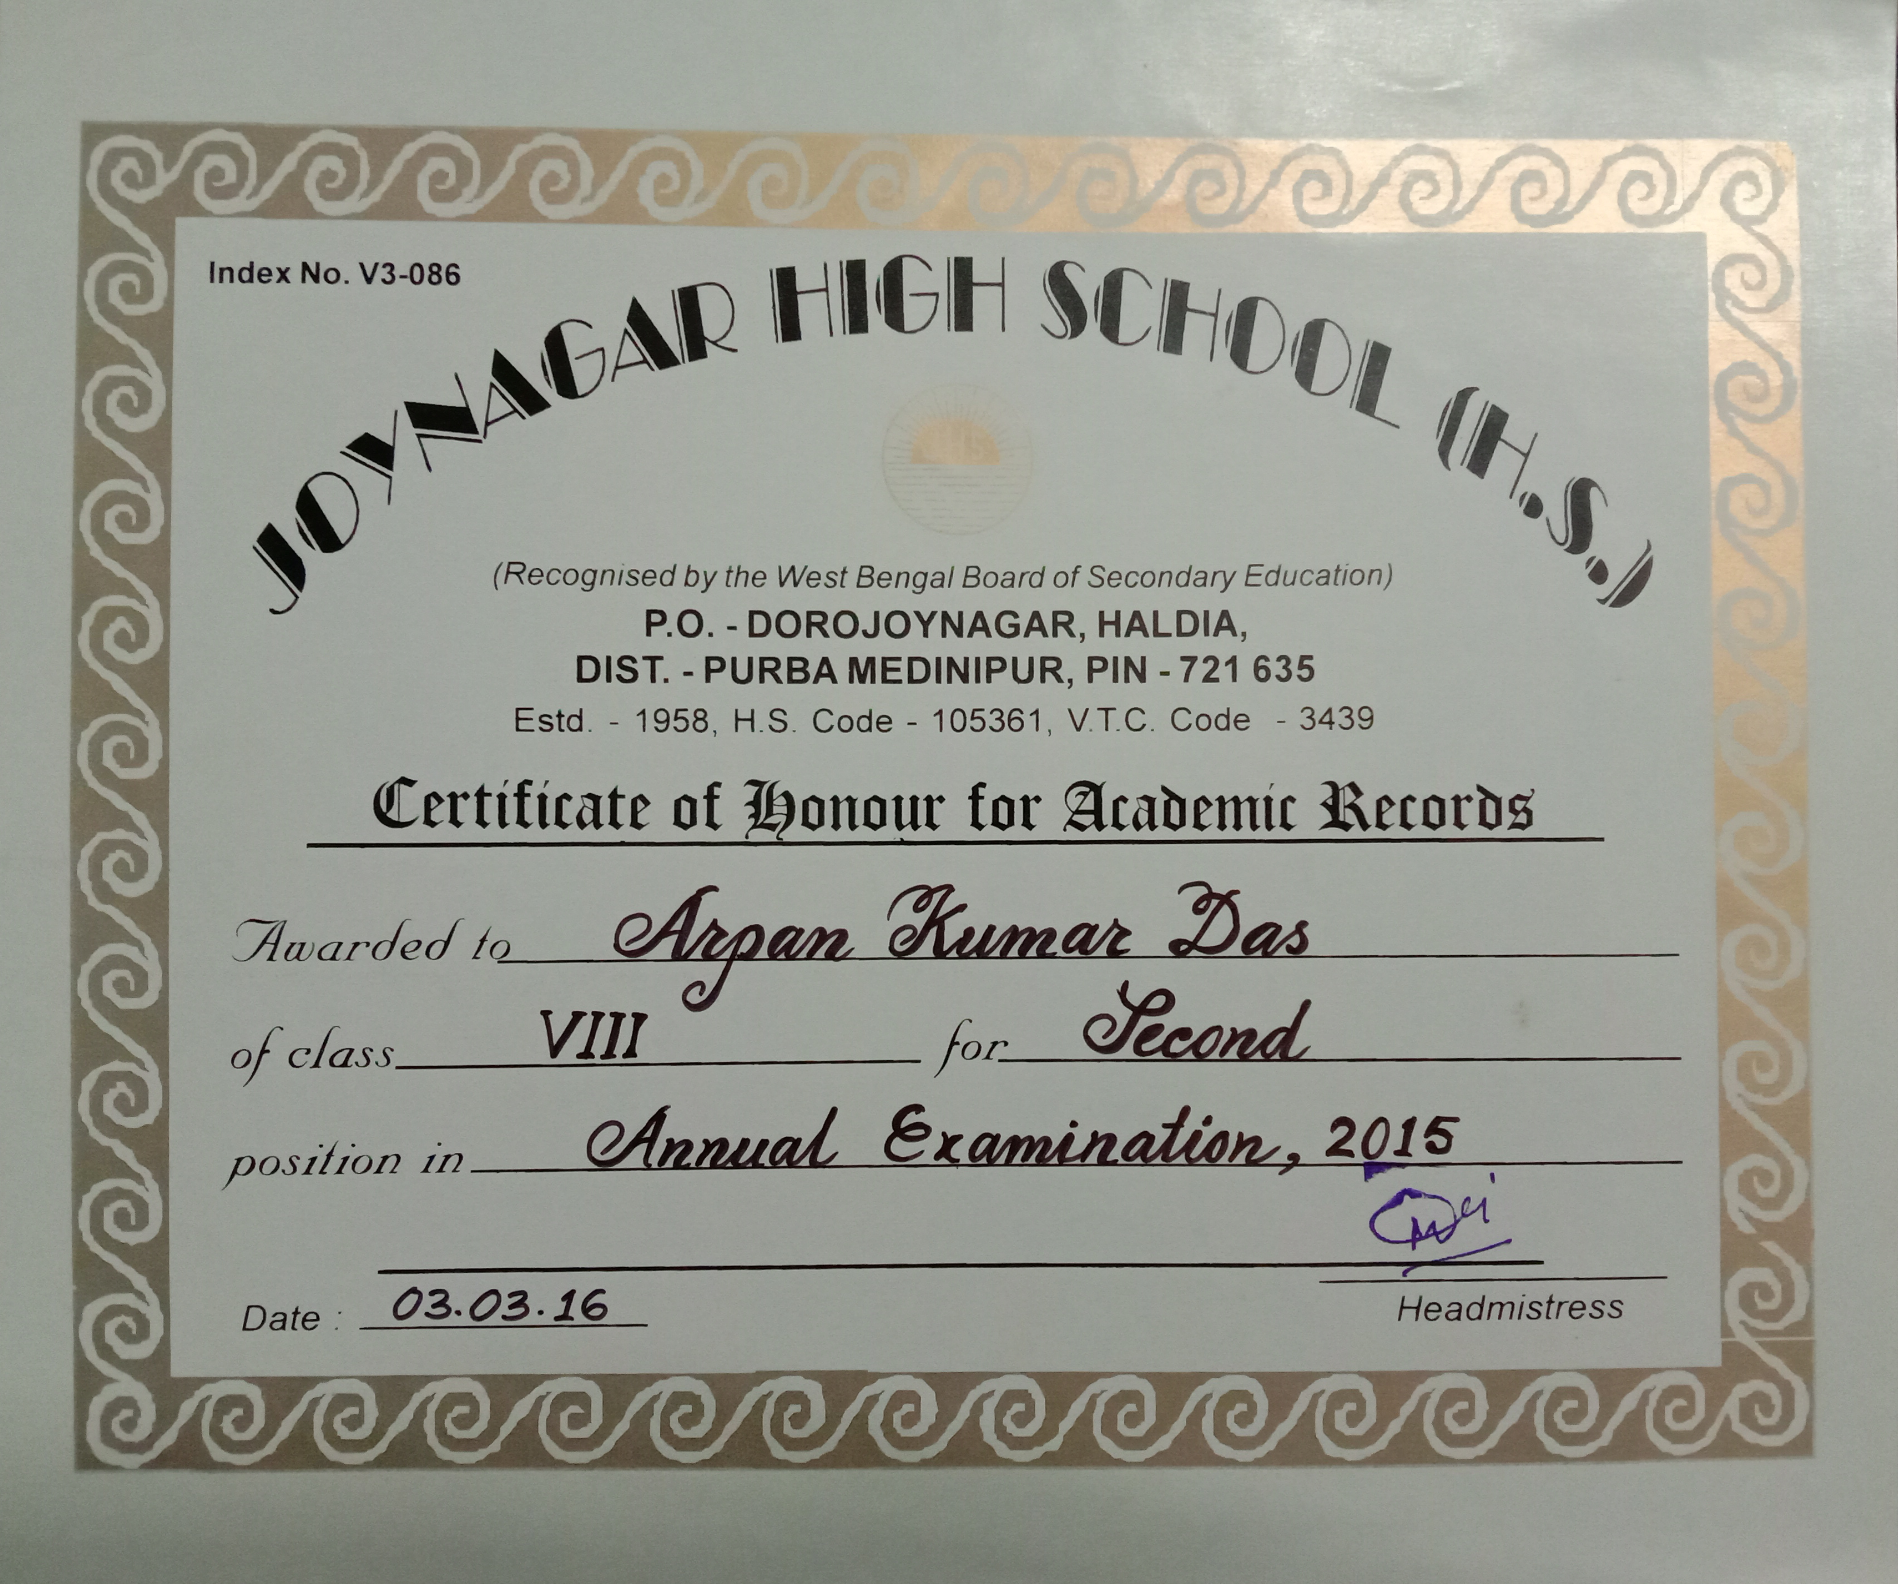 Index No. V3-086
JOYNAGAR HIGH SCHOOL (H.S.)
(Recognised by the West Bengal Board of Secondary Education)
P.O. - DOROJOYNAGAR, HALDIA,
DIST. - PURBA MEDINIPUR, PIN - 721 635
Estd. - 1958, H.S. Code - 105361, V.T.C. Code - 3439
Certificate of Honour for Academic Records
Awarded to Arpan Kumar Das
of class VIII for Second
position in Annual Examination, 2015
Date : 03.03.16
Headmistress